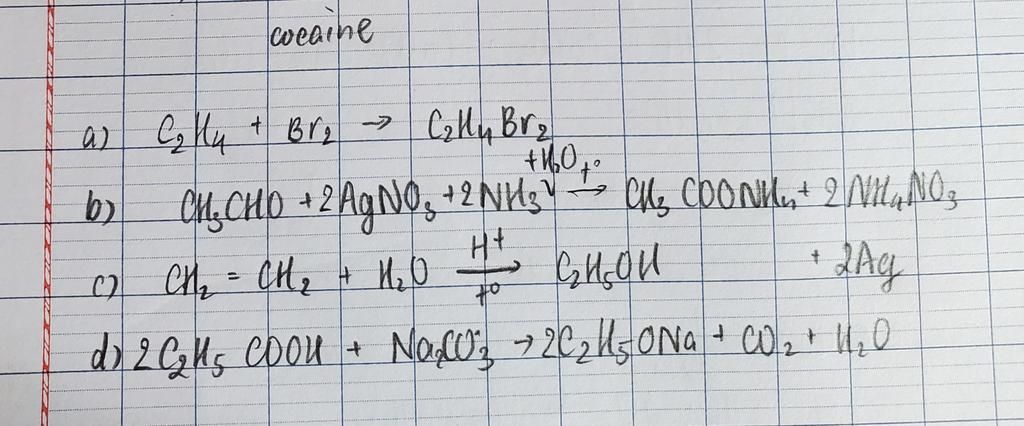 cocaine
a) C₂H₄ + Br₂ → C₂H₄Br₂
b) CH₃CHO + 2AgNO₃ + 2NH₃ + H₂O t° → CH₃COONH₄ + 2NH₄NO₃
+ 2Ag
c) CH₂ = CH₂ + H₂O H⁺ → t° C₂H₅OH
d) 2C₂H₅COOH + Na₂CO₃ → 2C₂H₅ONa + CO₂ + H₂O